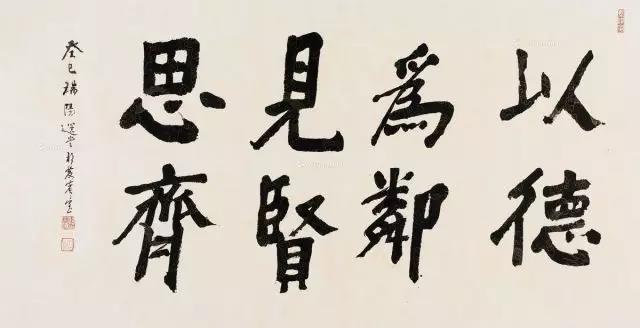 以德
為鄰
見賢
思齊
癸巳端陽選堂